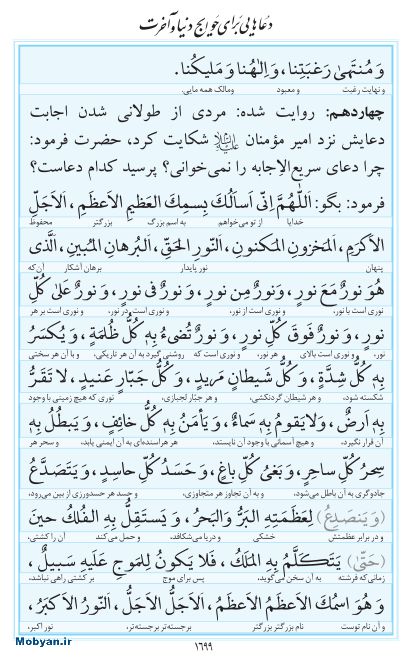 دعاهایی برای حوایج دنیا و آخرت
وَ مُنتَهیٰ رَغبَتِنا، وَ اِلٰهُنا وَ مَلیکُنا.
و نهایت رغبت و معبود ومالک همه مایی.
چهاردهم: روایت شده: مردی از طولانی شدن اجابت
دعایش نزد امیر مؤمنان علیه‌السلام شکایت کرد، حضرت فرمود:
چرا دعای سریع‌الاجابه را نمی‌خوانی؟ پرسید کدام دعاست؟
فرمود: بگو: اَللّٰهُمَّ اِنّی اَساَلُکَ بِسمِکَ العَظیمِ الاَعظَمِ، اَلاَجَلِّ
خدایا از تو می‌خواهم به اسم بزرگ بزرگتر محفوظ
الاَکرَمِ، اَلمَخزونِ المَکنونِ، اَلنّورِ الحَقِّ، اَلبُرهانِ المُبینِ، اَلَّذی
پنهان نور پایدار برهان آشکار آن‌که
هُوَ نورٌ مَعَ نورٍ، وَ نورٌ مِن نورٍ، وَ نورٌ فی نورٍ، وَ نورٌ عَلیٰ کُلِّ
نوری است با نور، و نوری است از نور، و نوری است در نور، و نوری است بر هر
نورٍ، وَ نورٌ فَوقَ کُلِّ نورٍ، وَ نورٌ تُضیءُ بِهٖ کُلُّ ظُلمَةٍ، وَ یُکسَرُ
نور، و نوری است بالای هر نور، و نوری است که روشنی گیرد به آن هر تاریکی، و با آن هر سختی
بِهٖ کُلُّ شِدَّةٍ، وَ کُلُّ شَیطانٍ مَریدٍ، وَ کُلُّ جَبّارٍ عَنیدٍ، لا تَقَرُّ
شکسته شود، و هر شیطان گردنکشی، و هر جبّار لجبازی، نوری که هیچ زمینی با وجود
بِهٖ اَرضٌ، وَلا یَقومُ بِهٖ سَماءٌ، وَ یَأمَنُ بِهٖ کُلُّ خائِفٍ، وَ یَبطُلُ بِهٖ
آن قرار نگیرد، و هیچ آسمانی با وجود آن نایستد، هر هراسنده‌ای به آن ایمنی یابد، و سحر هر
سِحرُ کُلِّ ساحِرٍ، وَ بَغیُ کُلِّ باغٍ، وَ حَسَدُ کُلِّ حاسِدٍ، وَ یَتَصَدَّعُ
جادوگری به آن باطل می‌شود، و به آن تجاوز هر متجاوزی، و حسد هر حسدورزی از بین می‌رود،
(وَ یَنصَدِعُ) لِعَظَمَتِهِ البَرُّ وَالبَحرُ، وَ یَستَقِلُّ بِهِ الفُلکُ حینَ
و در برابر عظمتش خشکی و دریا می‌شکافد، و حمل می‌کند آن را کشتی،
(حَتّیٰ) یَتَکَلَّمُ بِهِ المَلَکُ، فَلا یَکونُ لِلمَوجِ عَلَیهِ سَبیلٌ،
زمانی‌که فرشته به آن سخن می‌گوید، پس برای موج بر کشتی راهی نباشد،
وَ هُوَ اسمُکَ الاَعظَمُ الاَعظَمُ، اَلاَجَلُّ الاَجَلُّ، اَلنّورُ الاَکبَرُ،
و آن نام توست نام بزرگتر بزرگتر برجسته‌تر برجسته‌تر، نور اکبر،
۱۶۹۹
Mobyan.ir